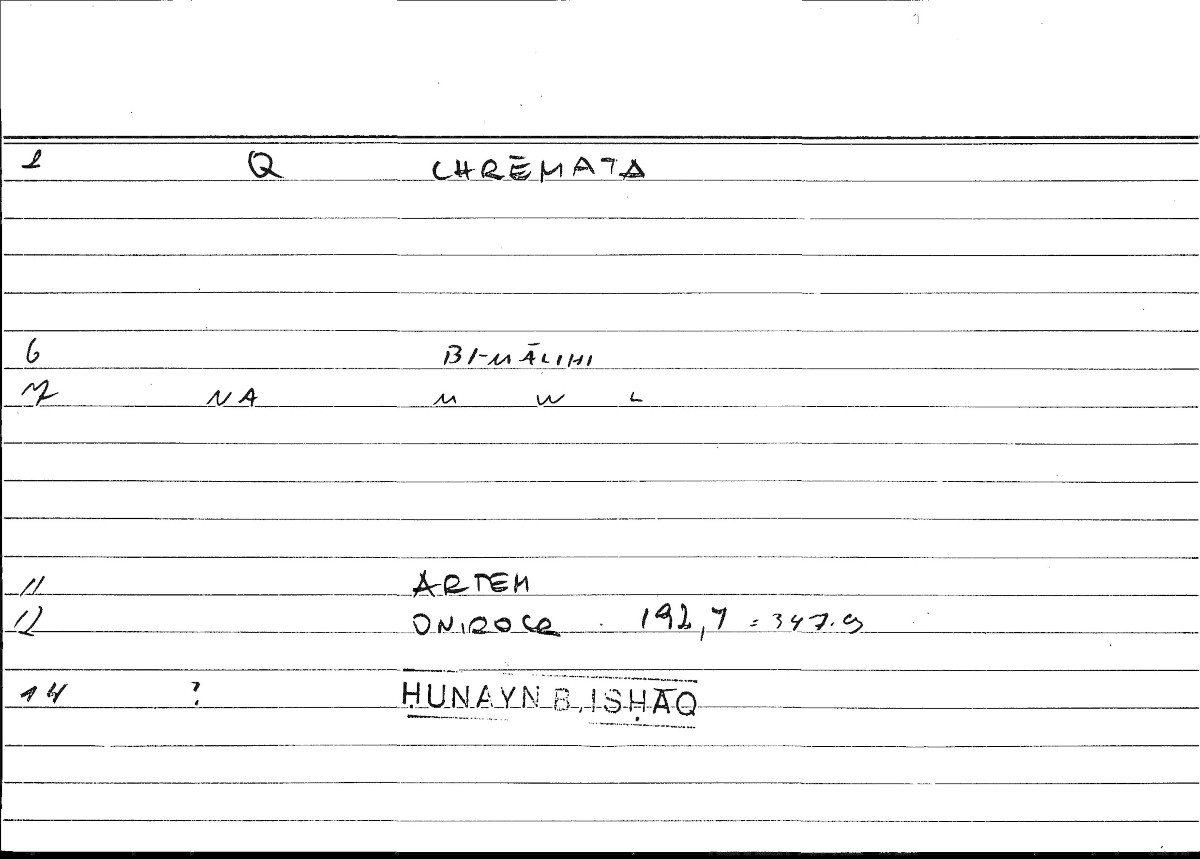 1 Q CHRĒMATA
6 BI-MĀLIHI
7 NA M W L
11 ARTEM
12 ONIROCR . 192,7 = 347.9
14 ? ḤUNAYN B. ISḤĀQ